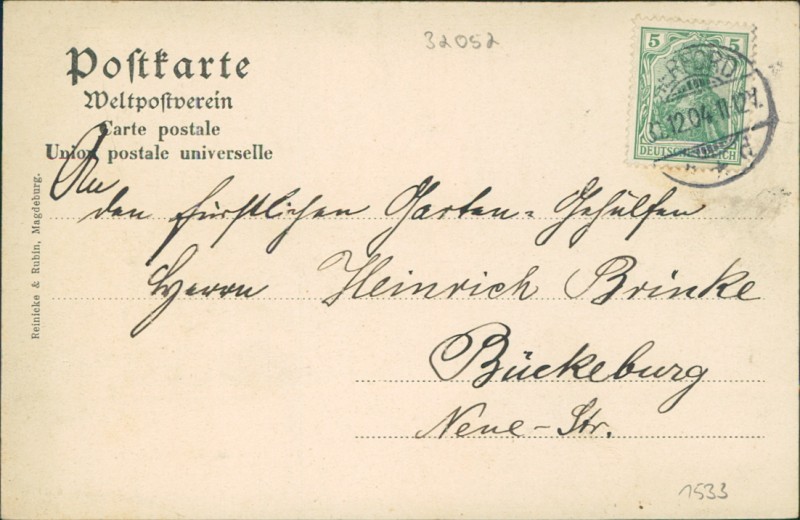 32052
Postkarte
Weltpostverein
Carte postale
Union postale universelle
5 5
DEUTSCHES REICH
HERFORD
12.04.11-12V.
An
den fürstlichen Garten-Gehülfen
Herrn Heinrich Brinke
Bückeburg
Neue-Str.
Reinicke & Rubin, Magdeburg.
1533